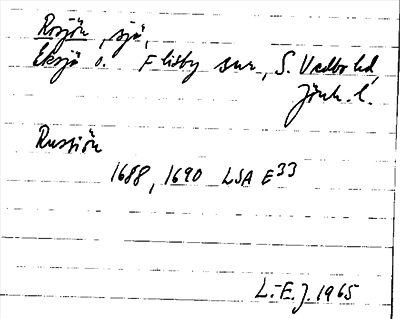 Rosjön, sjö,
Eksjö o. Flisby snr., S. Vedbo hd,
Jönk. l.
Russiön
1688, 1690 LSA E33
L.-E.J. 1965